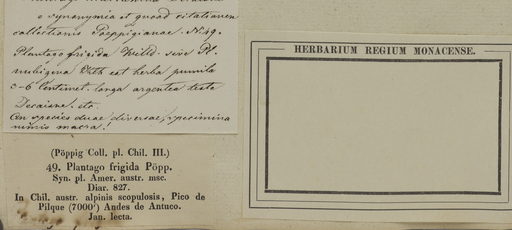 e synonymia et quoad citationem
collectionis Poeppigianae. N. 49.
Plantago frigida Willd. sive Pl.
nubigena Kth est herba pumila
5-6 Centimet. longa argentea teste
Decaisne. etc
an species duae diversae, specimina
nimis macra!
(Pöppig Coll. pl. Chil. III.)
49. Plantago frigida Pöpp.
Syn. pl. Amer. austr. msc.
Diar. 827.
In Chil. austr. alpinis scopulosis, Pico de
Pilque (7000′) Andes de Antuco.
Jan. lecta.
HERBARIUM REGIUM MONACENSE.